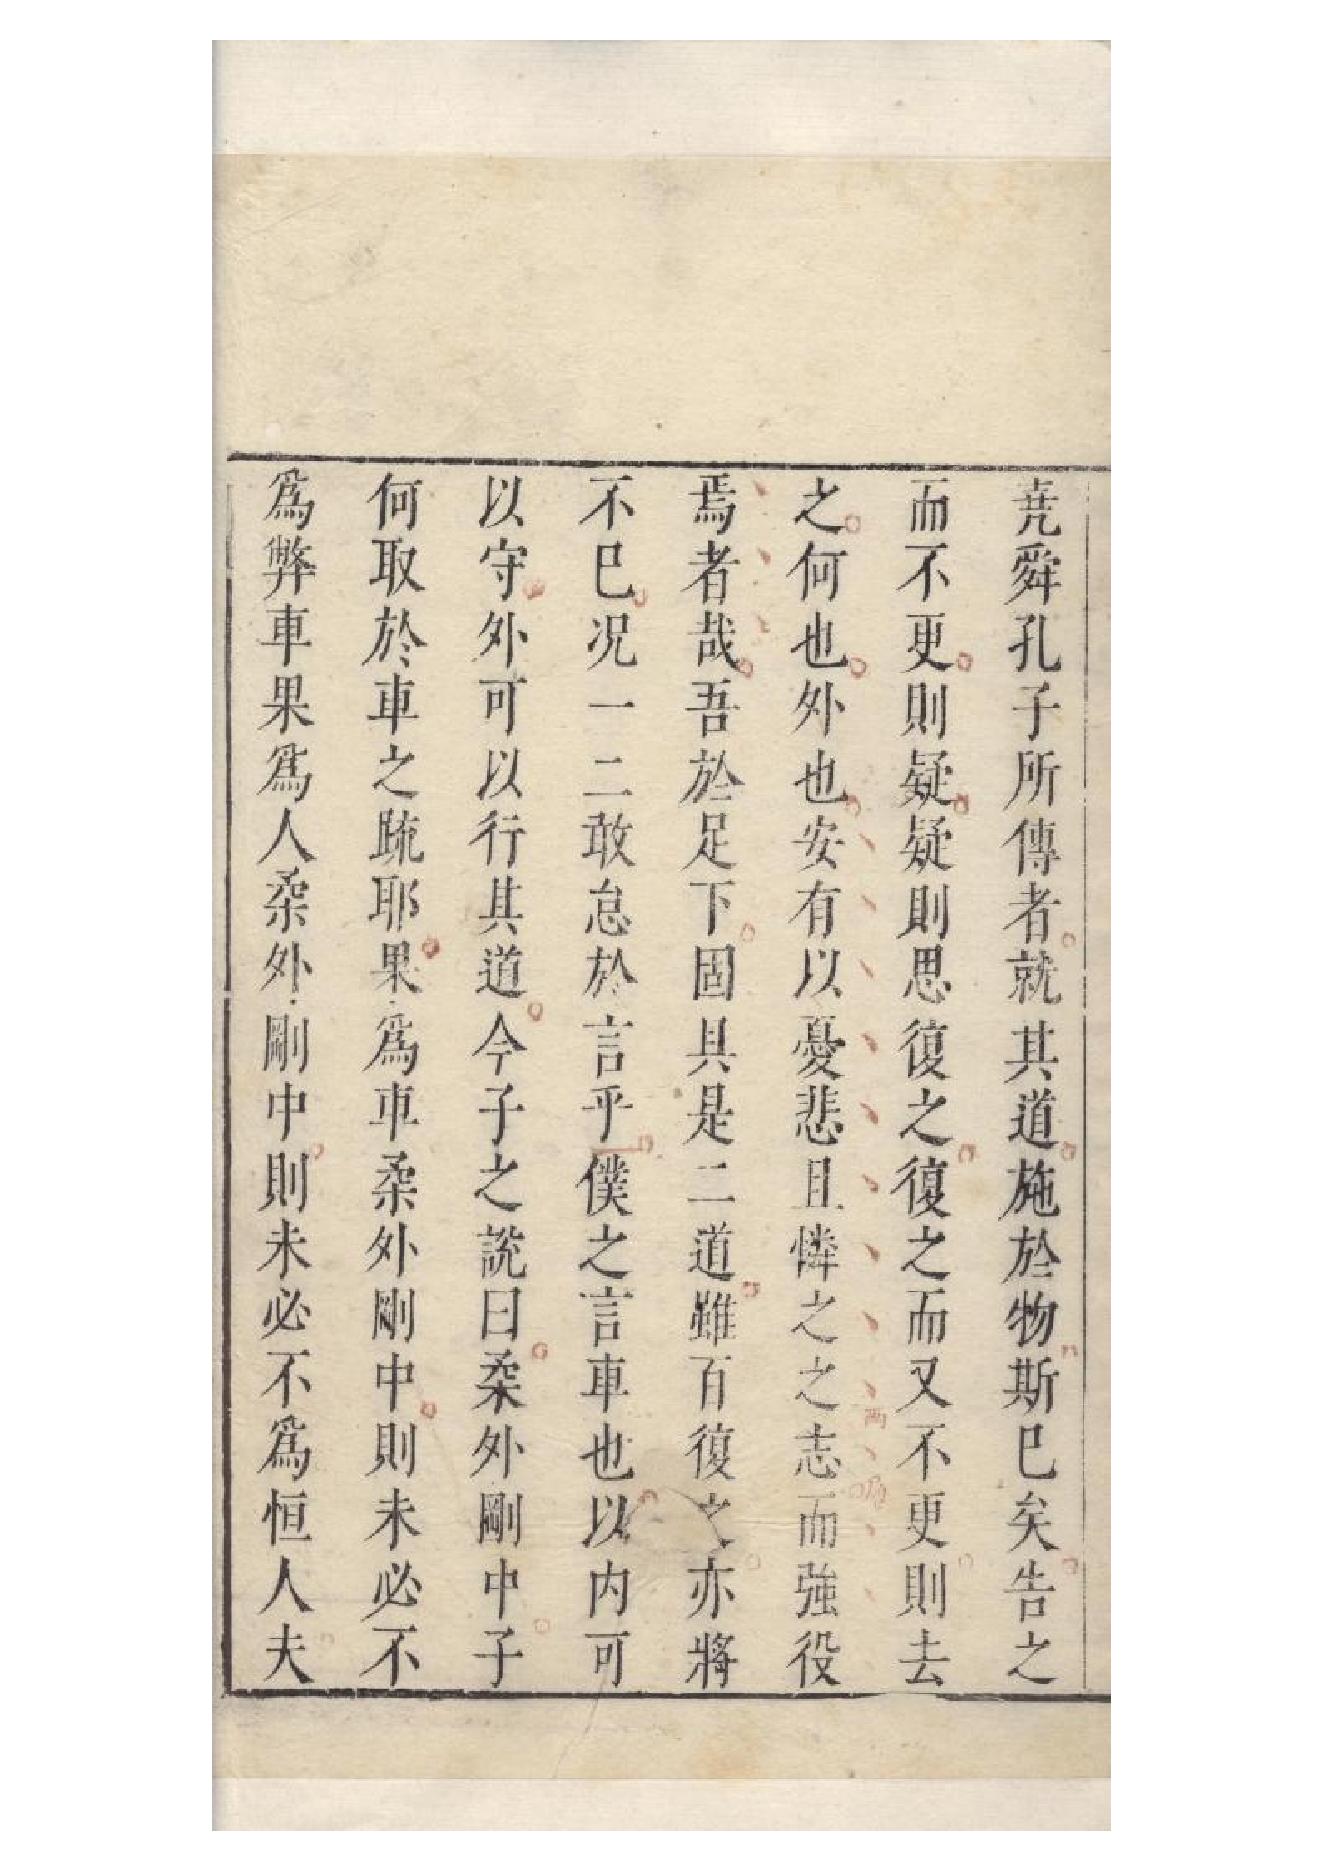 堯舜孔子所傳者就其道施於物斯巳矣告之
而不更則疑疑則思復之復之而又不更則去
之何也外也安有以憂悲且憐之之志而強役
焉者哉吾於足下固具是二道雖百復之亦將
不巳况一二敢怠於言乎僕之言車也以内可
以守外可以行其道今子之說曰柔外剛中子
何取於車之䟽耶果爲車柔外剛中則未必不
爲弊車果爲人柔外剛中則未必不爲恒人夫